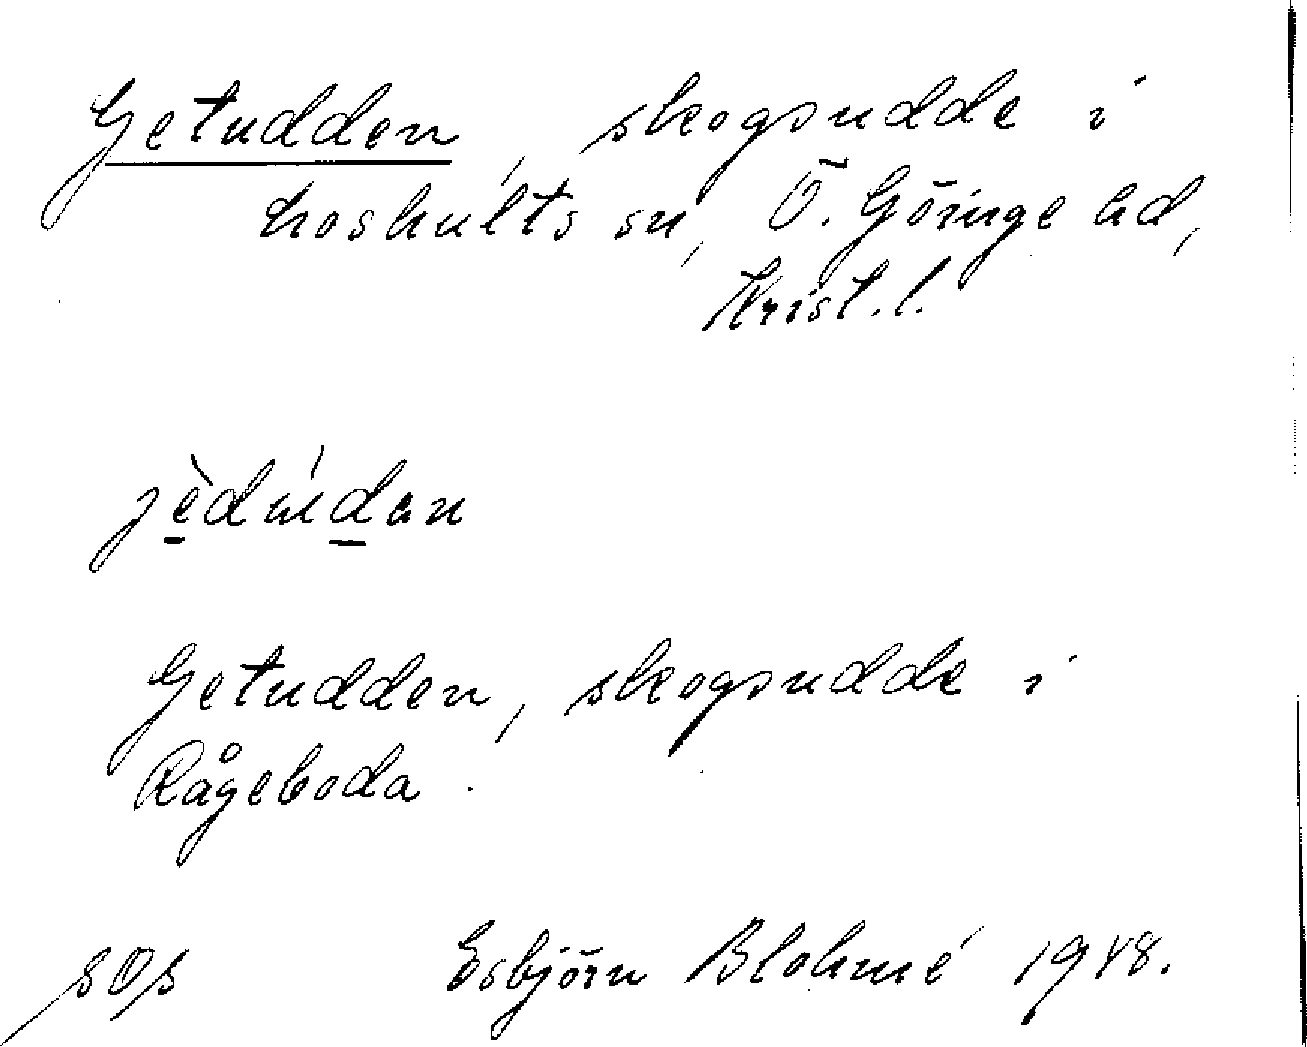 Getudden, skogsudde i
Loshults sn, Ö. Göinge hd,
Krist. l.
jèdúdan
Getudden, skogsudde i
Rågeboda.
Esbjörn Blohmé 1948.